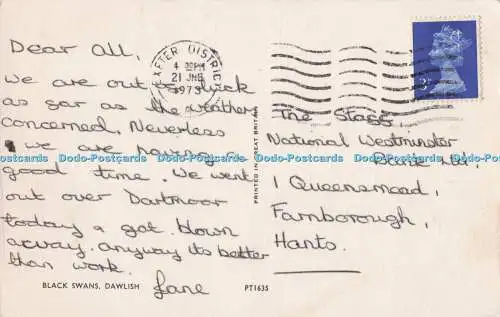 Dear All,
We are out of luck
as far as the weather's
concerned. Neverless
we are having a
good time. We went
out over Dartmoor
today & got blown
away. anyway its better
than work.
Jane
BLACK SWANS, DAWLISH
PT1635
PRINTED IN GREAT BRITAIN
EXETER DISTRICT
21 JNE
1973
The Staff
National Westminster
Bank Ltd.
1 Queensmead,
Farnborough,
Hants.
Dodo-Postcards Dodo-Postcards Dodo-Postcards Dodo-Postcards Dodo-Postcards